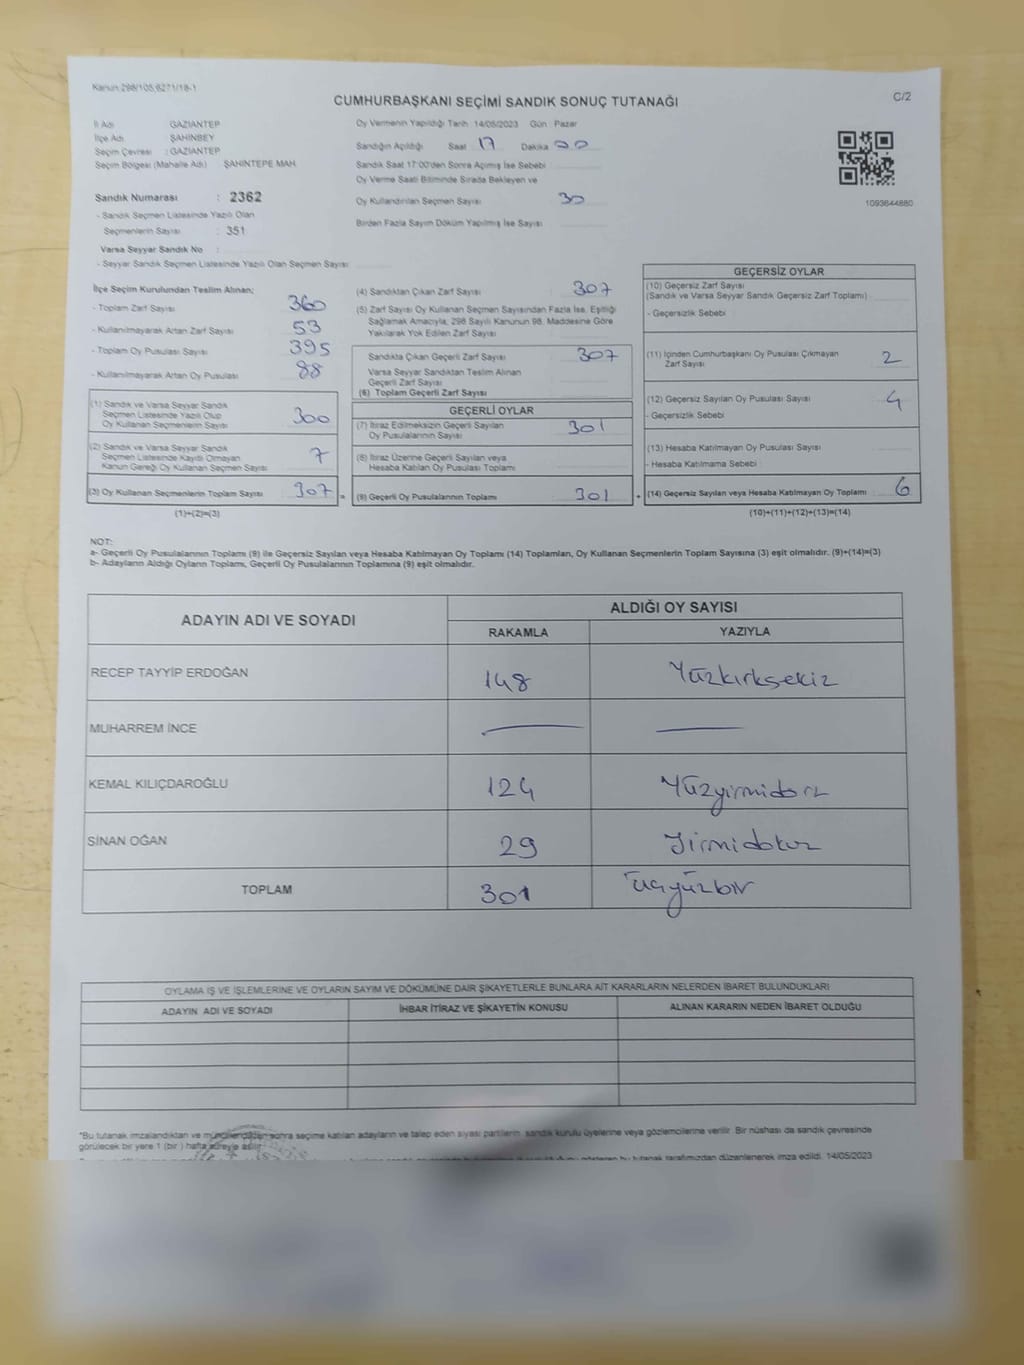 Kanun:298/105;6271/18-1
CUMHURBAŞKANI SEÇİMİ SANDIK SONUÇ TUTANAĞI
C/2
İl Adı GAZİANTEP
İlçe Adı ŞAHİNBEY
Seçim Çevresi : GAZİANTEP
Seçim Bölgesi (Mahalle Adı) ŞAHİNTEPE MAH.
Sandık Numarası : 2362
- Sandık Seçmen Listesinde Yazılı Olan
Seçmenlerin Sayısı : 351
Varsa Seyyar Sandık No :
- Seyyar Sandık Seçmen Listesinde Yazılı Olan Seçmen Sayısı
Oy Vermenin Yapıldığı Tarih : 14/05/2023 Gün : Pazar
Sandığın Açıldığı Saat 17 Dakika 00
Sandık Saat 17:00'den Sonra Açılmış İse Sebebi
Oy Verme Saati Bitiminde Sırada Bekleyen ve
Oy Kullandırılan Seçmen Sayısı 30
Birden Fazla Sayım Döküm Yapılmış İse Sayısı
1093644880
İlçe Seçim Kurulundan Teslim Alınan;
- Toplam Zarf Sayısı 360
- Kullanılmayarak Artan Zarf Sayısı 53
- Toplam Oy Pusulası Sayısı 395
- Kullanılmayarak Artan Oy Pusulası 88
(1) Sandık ve Varsa Seyyar Sandık
Seçmen Listesinde Yazılı Olup
Oy Kullanan Seçmenlerin Sayısı 300
(2) Sandık ve Varsa Seyyar Sandık
Seçmen Listesinde Kayıtlı Olmayan
Kanun Gereği Oy Kullanan Seçmen Sayısı 7
(3) Oy Kullanan Seçmenlerin Toplam Sayısı 307 =
(1)+(2)=(3)
(4) Sandıktan Çıkan Zarf Sayısı 307
(5) Zarf Sayısı Oy Kullanan Seçmen Sayısından Fazla İse, Eşitliği
Sağlamak Amacıyla, 298 Sayılı Kanunun 98. Maddesine Göre
Yakılarak Yok Edilen Zarf Sayısı
Sandıkta Çıkan Geçerli Zarf Sayısı 307
Varsa Seyyar Sandıktan Teslim Alınan
Geçerli Zarf Sayısı
(6) Toplam Geçerli Zarf Sayısı
GEÇERLİ OYLAR
(7) İtiraz Edilmeksizin Geçerli Sayılan
Oy Pusulalarının Sayısı 301
(8) İtiraz Üzerine Geçerli Sayılan veya
Hesaba Katılan Oy Pusulası Toplamı
(9) Geçerli Oy Pusulalarının Toplamı 301 +
GEÇERSİZ OYLAR
(10) Geçersiz Zarf Sayısı
(Sandık ve Varsa Seyyar Sandık Geçersiz Zarf Toplamı)
- Geçersizlik Sebebi
(11) İçinden Cumhurbaşkanı Oy Pusulası Çıkmayan
Zarf Sayısı 2
(12) Geçersiz Sayılan Oy Pusulası Sayısı 4
- Geçersizlik Sebebi
(13) Hesaba Katılmayan Oy Pusulası Sayısı
- Hesaba Katılmama Sebebi
(14) Geçersiz Sayılan veya Hesaba Katılmayan Oy Toplamı 6
(10)+(11)+(12)+(13)=(14)
NOT:
a- Geçerli Oy Pusulalarının Toplamı (9) ile Geçersiz Sayılan veya Hesaba Katılmayan Oy Toplamı (14) Toplamları, Oy Kullanan Seçmenlerin Toplam Sayısına (3) eşit olmalıdır. (9)+(14)=(3)
b- Adayların Aldığı Oyların Toplamı, Geçerli Oy Pusulalarının Toplamına (9) eşit olmalıdır.
ADAYIN ADI VE SOYADI
ALDIĞI OY SAYISI
RAKAMLA YAZIYLA
RECEP TAYYİP ERDOĞAN 148 Yüzkırksekiz
MUHARREM İNCE
KEMAL KILIÇDAROĞLU 124 Yüzyirmidört
SİNAN OĞAN 29 Yirmidokuz
TOPLAM 301 Üçyüzbir
OYLAMA İŞ VE İŞLEMLERİNE VE OYLARIN SAYIM VE DÖKÜMÜNE DAİR ŞİKAYETLERLE BUNLARA AİT KARARLARIN NELERDEN İBARET BULUNDUKLARI
ADAYIN ADI VE SOYADI İHBAR İTİRAZ VE ŞİKAYETİN KONUSU ALINAN KARARIN NEDEN İBARET OLDUĞU
*Bu tutanak imzalandıktan ve mühürlendikten sonra seçime katılan adayların ve talep eden siyasi partilerin sandık kurulu üyelerine veya gözlemcilerine verilir. Bir nüshası da sandık çevresinde
görülecek bir yere 1 (bir ) hafta süreyle asılır.
bu tutanak tarafımızdan düzenlenerek imza edildi. 14/05/2023